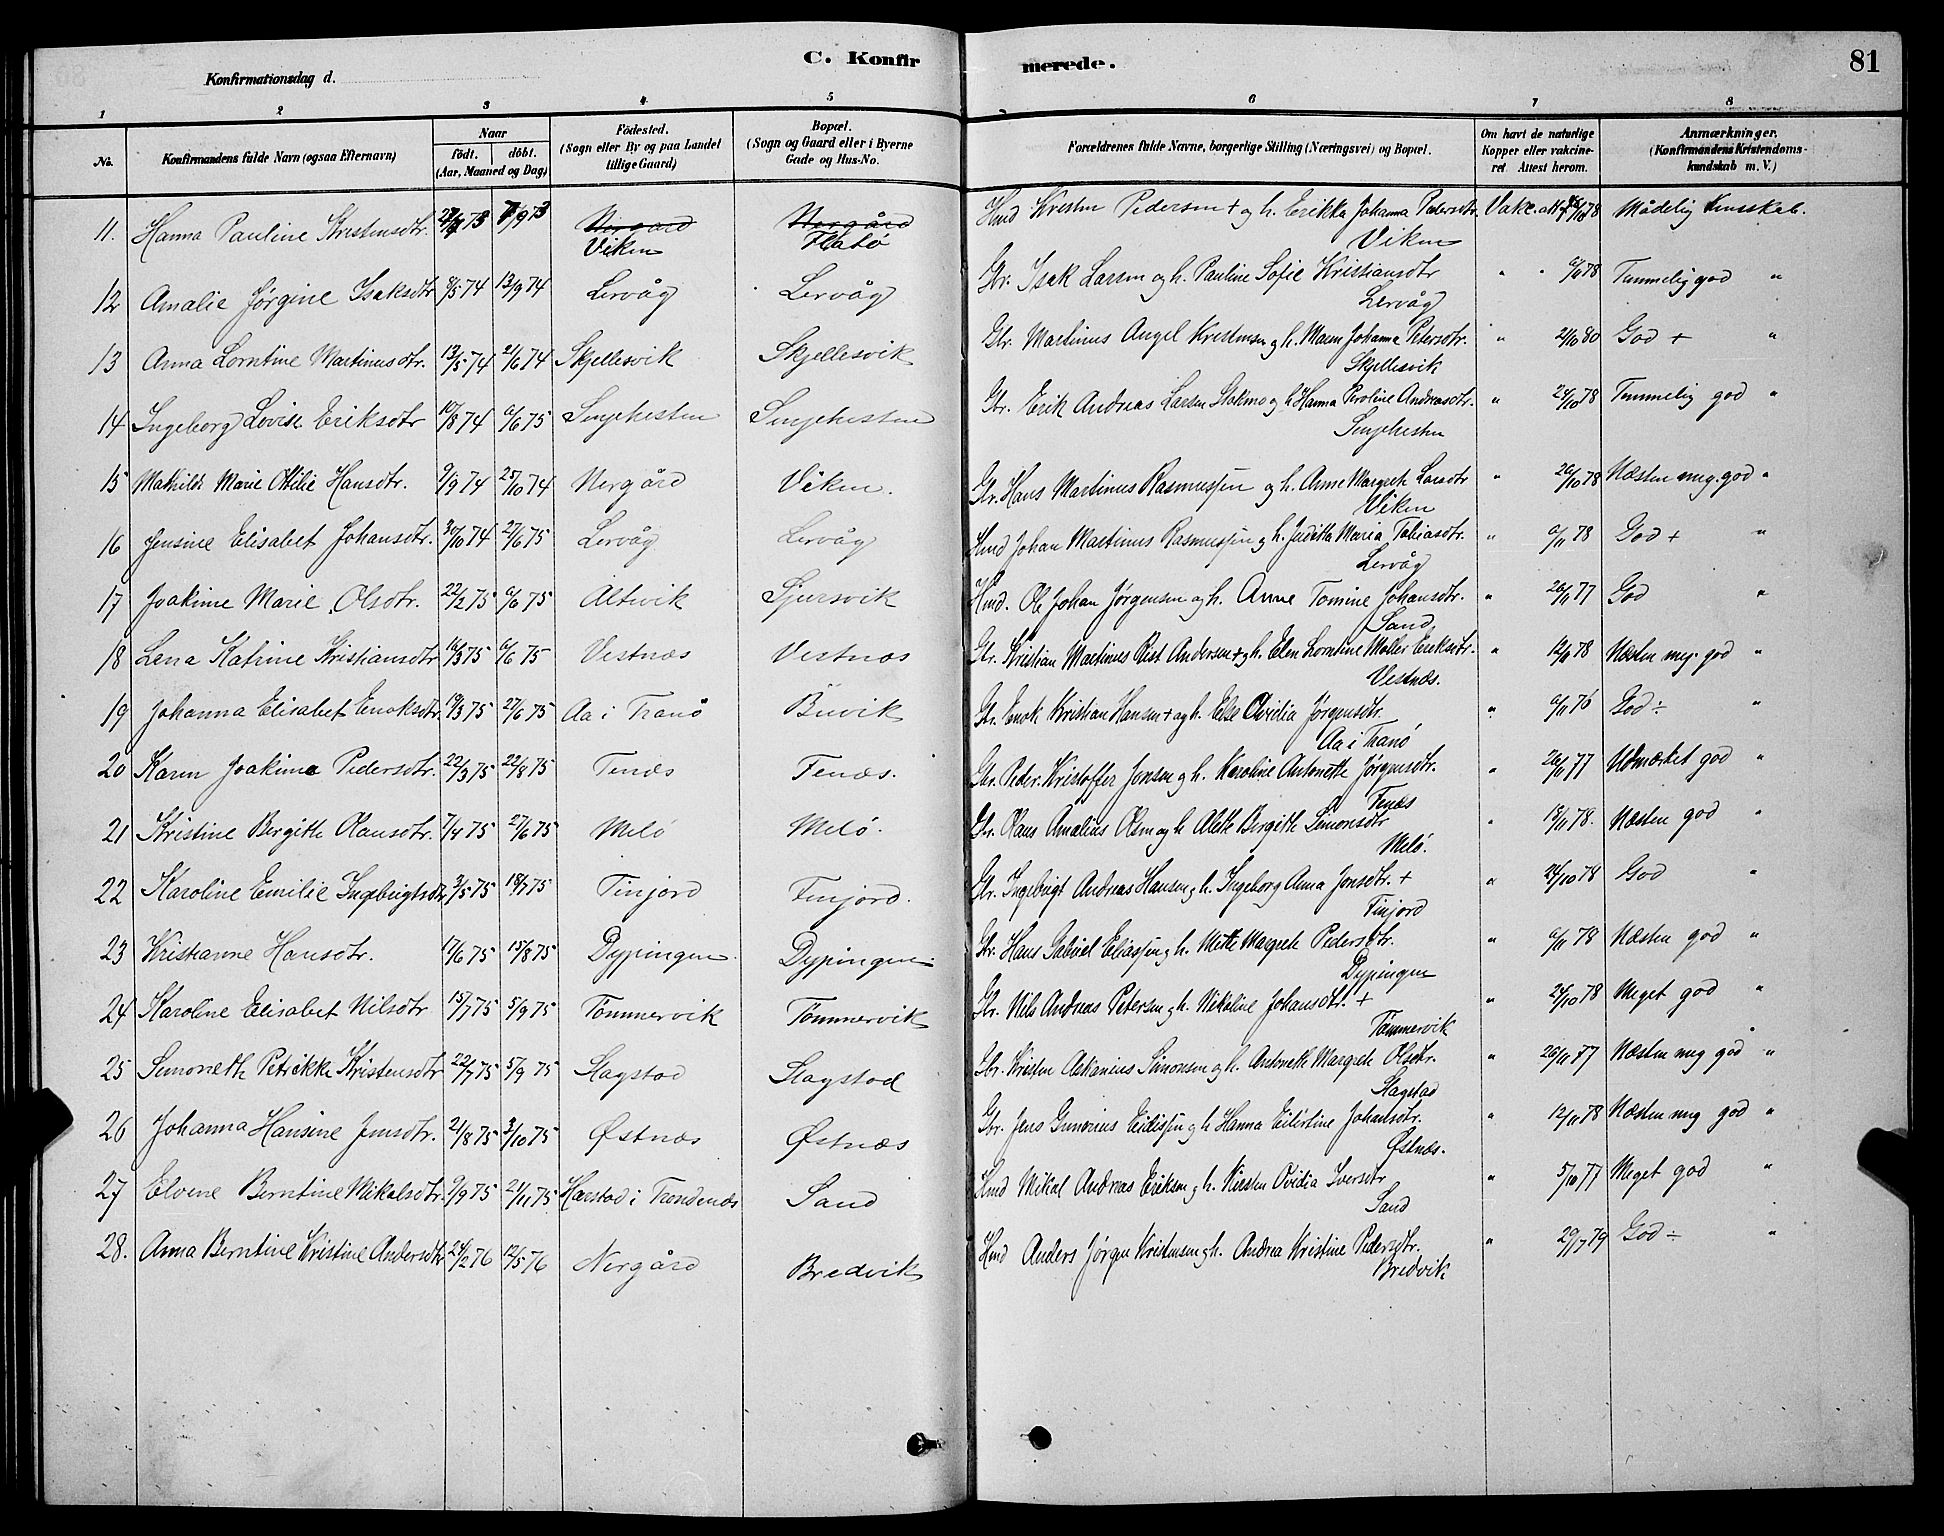 C. Konfirmerede.
81
Konfirmationsdag d.
1 2 3 4 5 6 7 8
No. Konfirmandens fulde Navn (ogsaa Efternavn) Naar födt. döbt. (Aar, Maaned og Dag) Födested. (Sogn eller By og paa Landet tillige Gaard) Bopæl. (Sogn og Gaard eller i Byerne Gade og Hus-No. Forældrenes fulde Navne, borgerlige Stilling (Næringsvei) og Bopæl. Om havt de naturlige Kopper eller vakcineret Attest herom. Anmærkninger. (Konfirmandens Kristendomskundskab m. V.)
11. Hanna Pauline Kristensdtr. 7/9 73 Nergård Viken Nergård Flatö Hmd Kristen Pedersen + og h. Erikka Johanna Pedersdtr. Viken Vakc. att. 78 Mådelig kunskab.
12 Amalie Jørgine Isaksdtr 9/5 74 13/9 74 Lervåg Lervåg Gbr. Isak Larsen og h. Pauline Sofie Kristiansdtr Lervåg " " 6/11 78 Temmelig god "
13 Anna Lorntine Martinusdtr. 13/5 74 21/6 74 Skjellesvik Skjellesvik Gbr. Martinus Angel Kristensen og h. Maren Johanna Petersdtr. Skjellesvik " 21/10 80 God + "
14 Ingeborg Lovise Eriksdtr 10/8 74 6/6 75 Senjehesten Senjehesten Gbr. Erik Andreas Larsen Stokmo og h Hanna Peroline Andreasdtr. Senjehesten " 24/10 78 Temmelig god "
15 Mathilde Marie Otilie Hansdtr. 9/9 74 25/10 74 Nergård Viken. Gbr. Hans Martinus Rasmussen og h. Anne Margrete Larsdtr Viken " 26/10 78 Næsten meg. god "
16 Jensine Elisabet Johansdtr. 30/10 74 27/6 75 Lervåg Lervåg Hmd Johan Martinus Rasmussen og h. Juditta Maria Tobiasdtr. Lervåg " 6/11 78 God + "
17 Joakime Marie Olsdtr. 22/2 75 6/6 75 Altvik Sjursvik Hmd. Ole Johan Jørgensen og h. Anne Tomine Johansdtr. Sand " 26/11 77 God "
18 Lena Katrine Kristiansdtr 16/3 75 6/6 75 Vestnæs Vestnæs Gbr. Kristian Martinus Rist Andersen + og h. Elen Lorntine Møller Eriksdtr. Vestnæs. " 12/11 78 Næsten meg. god "
19 Johanna Elisabet Enoksdtr. 19/3 75 27/6 75 Aa i Tranö Buvik Gbr. Enok Kristian Hansen + og h. Else Ovidia Jørgensdtr. Aa i Tranö " 6/11 76 God ÷ "
20 Karen Joakime Pedersdtr. 22/3 75 22/8 75 Tenæs Tenæs. Gbr. Peder Kristoffer Jensen og h. Karoline Antonette Jørgensdtr. Tenæs " 26/11 77 Udmærket god "
21 Kristine Bergitte Olausdtr. 7/4 75 27/6 75 Melö Melö. Gbr. Olaus Amalius Olsen og h Alette Birgitte Simonsdtr Melö. " 13/11 78. Næsten god "
22 Karoline Emilie Ingebrigtsdtr 3/5 75 18/7 75 Finjord Finjord. Gbr. Ingebrigt Andreas Hansen og h. Ingeborg Anna Jonsdtr. + Finjord " 24/10 78 God "
23 Kristianne Hansdtr. 17/6 75 15/8 75 Dypingen Dypingen Gbr. Hans Gabriel Eliassen og h. Mette Margrete Pedersdtr. Dypingen " 6/11 78 Næsten god "
24 Karoline Elisabet Nilsdtr 15/7 75 5/9 75 Tömmervik Tömmervik Gbr. Nils Andreas Petersen og h. Nikoline Johansdtr. + Tömmervik " 24/10 78 Meget god "
25 Simonette Petrikke Kristensdtr 22/7 75 5/9 75 Slagstad Slagstad Gbr. Kristen Askanius Simonsen og h. Antonette Margrete Olsdtr. Slagstad " 26/11 77 Næsten meg god "
26 Johanna Hansine Jensdtr. 21/8 75 3/10 75 Østnæs Østnæs Gbr. Jens Gunerius Eidissen og h Hanna Eilertine Johansdtr. Østnæs. " 12/11 78 Næsten meg god "
27 Elvine Berntine Mikalsdtr. 9/9 75 21/11 75 Harstad i Trondenæs Sand Hmd Mikal Andreas Eriksen og h. Kirsten Ovidia Iversdtr Sand " 5/10 77 Meget god "
28. Anna Berntine Kristine Andersdtr 24/2 76 12/5 76 Nergård Bredvik Hmd Anders Jørgen Kristensen og h. Andrea Kristine Pedersdtr. Bredvik " 29/7 79 God ÷ "